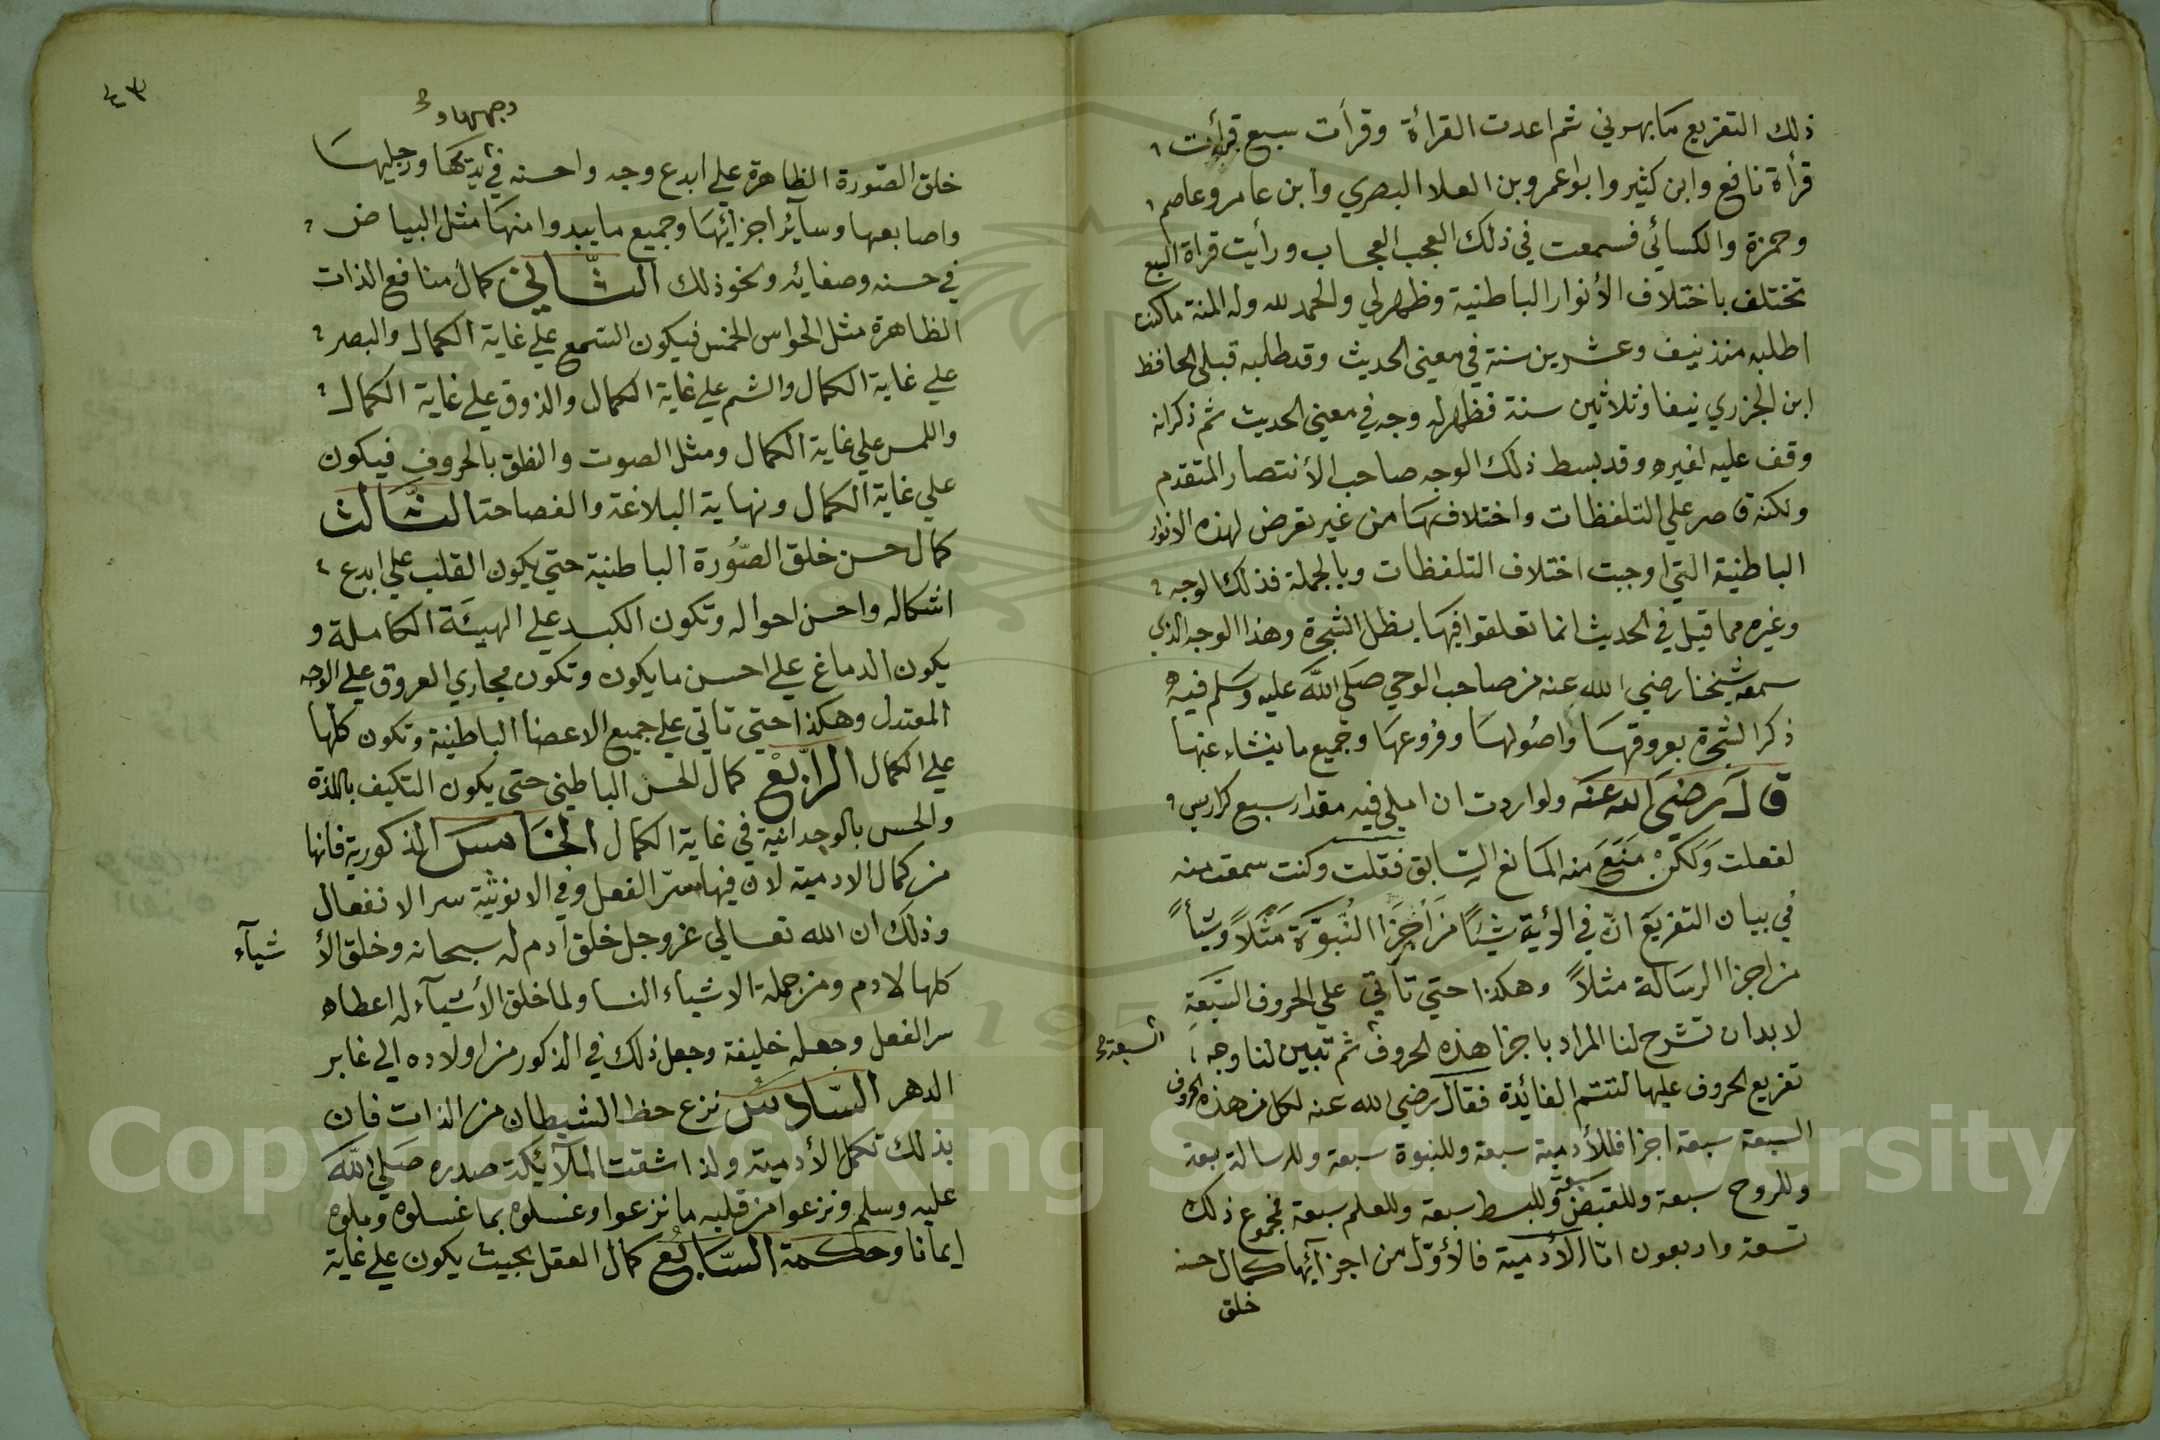 ذلك التفريع ما بهرني ثم اعدت القرأة وقرأت سبع قرأت
قرأة نافع وابن كثير وابوا عمرو بن العلا البصري وابن عامر وعاصم
وحمزة والكسائي فسمعت في ذلك العجب العجاب ورأيت قراة السبع
تختلف باختلاف الأنوار الباطنية وظهر لي والحمد لله وله المنة ما كنت
اطلبه منذ نيف وعشرين سنة في معنى الحديث وقد طلبه قبلي الحافظ
ابن الجزري نيفا وثلاثين سنة فظهر له وجه في معنى الحديث ثم ذكر انه
وقف عليه لغيره وقد بسط ذلك الوجه صاحب الأنتصار المتقدم
ولكنه قاصر علي التلفظات واختلافها من غير تعرض لهذه الانوار
الباطنية التي اوجبت اختلاف التلفظات وبالجملة فذلك الوجه
وغيره مما قيل في الحديث انما تعلقوا فيها بظل الشجرة وهذا الوجه الذي
سمعه شيخنا رضي الله عنه من صاحب الوحي صلي الله عليه وسلم فيه
ذكر الشجرة بعروقها واصولها وفروعها وجميع ما ينشاء عنها
قال رضي الله عنه ولو اردت ان املي فيه مقدار سبع كراريس
لفعلت ولكن منع منه المانع السابق فقلت وكنت سمعت منه
في بيان التفريع ان في الأية شيئا من أجزا النبوة مثلاً وشيأً
من اجزا الرسالة مثلاً وهكذا حتي تأتي علي الحروف السبعة
لا بد ان تشرح لنا المراد باجزا هذه الحروف ثم تبين لنا وجه
السبعة
تفريع الحروف عليها لتتم الفائدة فقال رضي الله عنه لكل من هذه الحروف
السبعة سبعة اجزا فللأدمية سبعة وللنبوة سبعة وللرسالة سبعة
وللروح سبعة وللقبض سبعة وللبسط سبعة وللعلم سبعة فمجموع ذلك
تسعة واربعون امّا الأدمية فالأوّل من اجزآئها كمال حسن
خلق
٤٣
وجهها و
خلق الصّورة الظاهرة علي ابدع وجه واحسنه في يديها ورجليها
واصابعها وسآئر اجزائها وجميع ما يبدوا منها مثل البياض
في حسنه وصفائه ونحو ذلك الثّاني كمال منافع الذات
الظاهرة مثل الحواس الخمس فيكون السمع علي غاية الكمال والبصر
علي غاية الكمال والشم علي غاية الكمال والذوق علي غاية الكمال
واللمس علي غاية الكمال ومثل الصوت والنطق بالحروف فيكون
علي غاية الكمال ونهاية البلاغة والفصاحة الثّالث
كمال حسن خلق الصّورة الباطنية حتي يكون القلب علي ابدع
اشكاله واحسن احواله وتكون الكبد علي الهيئة الكاملة و
يكون الدماغ علي احسن ما يكون وتكون مجاري العروق علي الوجه
المعتدل وهكذا حتي تاتي علي جميع الاعضا الباطنية وتكون كلها
علي الكمال الرّابع كمال الحسن الباطني حتي يكون التكيف باللذة
والحس بالوجدانية في غاية الكمال الخامس الذكورية فانها
من كمال الادمية لان فيها سرّ الفعل وفي الانوثية سر الانفعال
وذلك ان الله تعالي عز وجل خلق آدم له سبحانه وخلق الأ
شيآء
كلها لادم ومن جملة الاشياء النسا ولما خلق الأشيآء له اعطاه
سر الفعل وجعله خليفة وجعل ذلك في الذكور من اولاده الي غابر
الدهر السّادس نزع حظ الشيطان من الذات فان
بذلك تكمل الأدمية ولذا شقت الملآئكة صدره صلي الله
عليه وسلم ونزعوا من قلبه ما نزعوا وغسلوه بما غسلوه وملوه
ايمانا وحكمة السّابع كمال العقل بحيث يكون علي غاية
Copyright © King Saud University
195